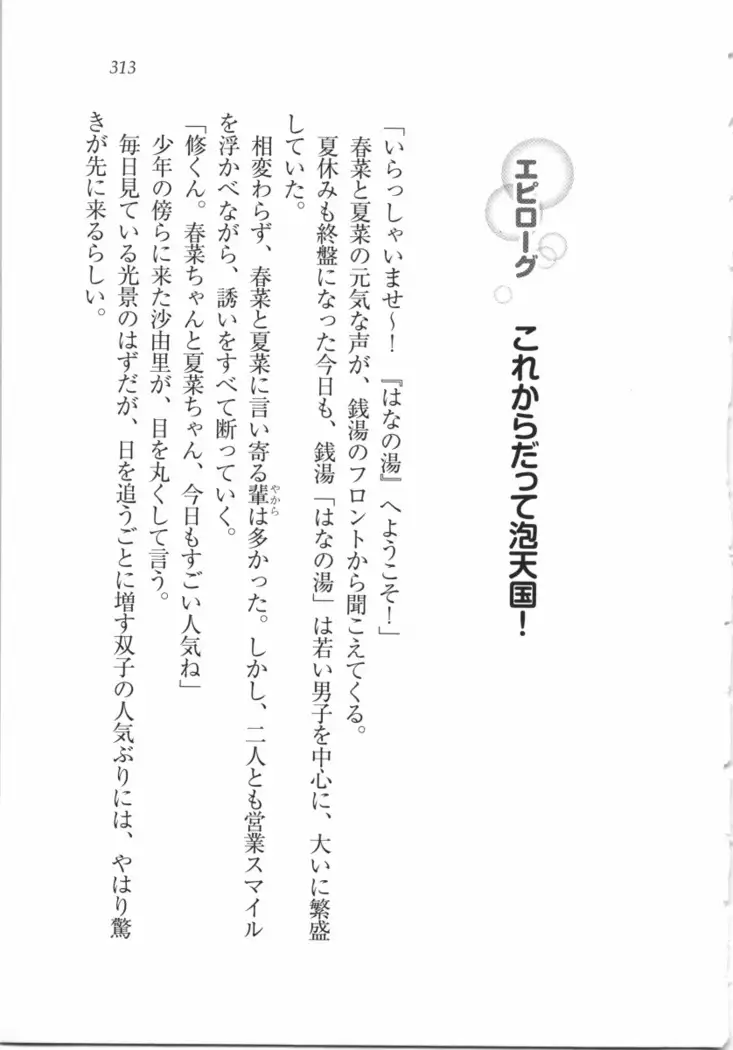 エピローグ　これからだって泡天国！
「いらっしゃいませ～！　『はなの湯』へようこそ！」
　春菜と夏菜の元気な声が、銭湯のフロントから聞こえてくる。
　夏休みも終盤になった今日も、銭湯「はなの湯」は若い男子を中心に、大いに繁盛
していた。
　相変わらず、春菜と夏菜に言い寄る輩は多かった。しかし、二人とも営業スマイル
やから
を浮かべながら、誘いをすべて断っていく。
「修くん。春菜ちゃんと夏菜ちゃん、今日もすごい人気ね」
　少年の傍らに来た沙由里が、目を丸くして言う。
　毎日見ている光景のはずだが、日を追うごとに増す双子の人気ぶりには、やはり驚
きが先に来るらしい。
313